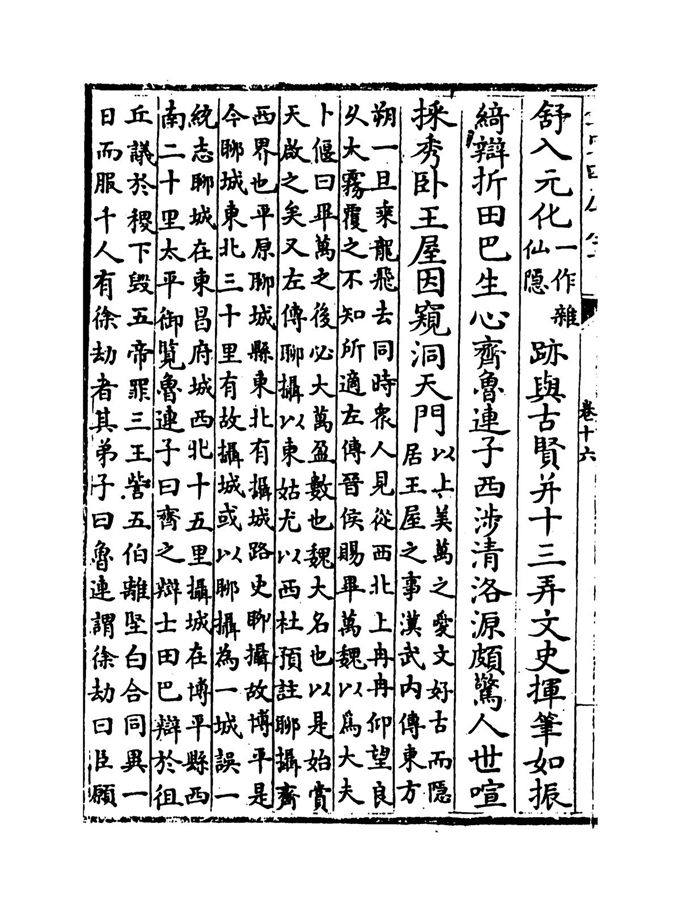 卷十六
舒入元化一作雜仙隱跡與古賢并十三弄文史揮筆如振
綺辯折田巴生心齊魯連子西涉清洛源頗驚人世喧
採秀卧王屋因窺洞天門以上美萬之愛文好古而隱
居王屋之事漢武内傳東方
朔一旦乗龍飛去同時衆人見從西北上冉冉仰望良
久大霧覆之不知所適左傳晉侯賜畢萬魏以為大夫
卜偃曰畢萬之後必大萬盈數也魏大名也以是始賞
天啟之矣又左傳聊攝以東姑尤以西杜預註聊攝齊
西界也平原聊城縣東北有攝城路史聊攝故博平是
今聊城東北三十里有故攝城或以聊攝為一城誤一
統志聊城在東昌府城西北十五里攝城在博平縣西
南二十里太平御覧魯連子曰齊之辯士田巴辯於徂
丘議於稷下毁五帝罪三王訾五伯離堅白合同異一
日而服千人有徐劫者其弟子曰魯連謂徐劫曰臣願